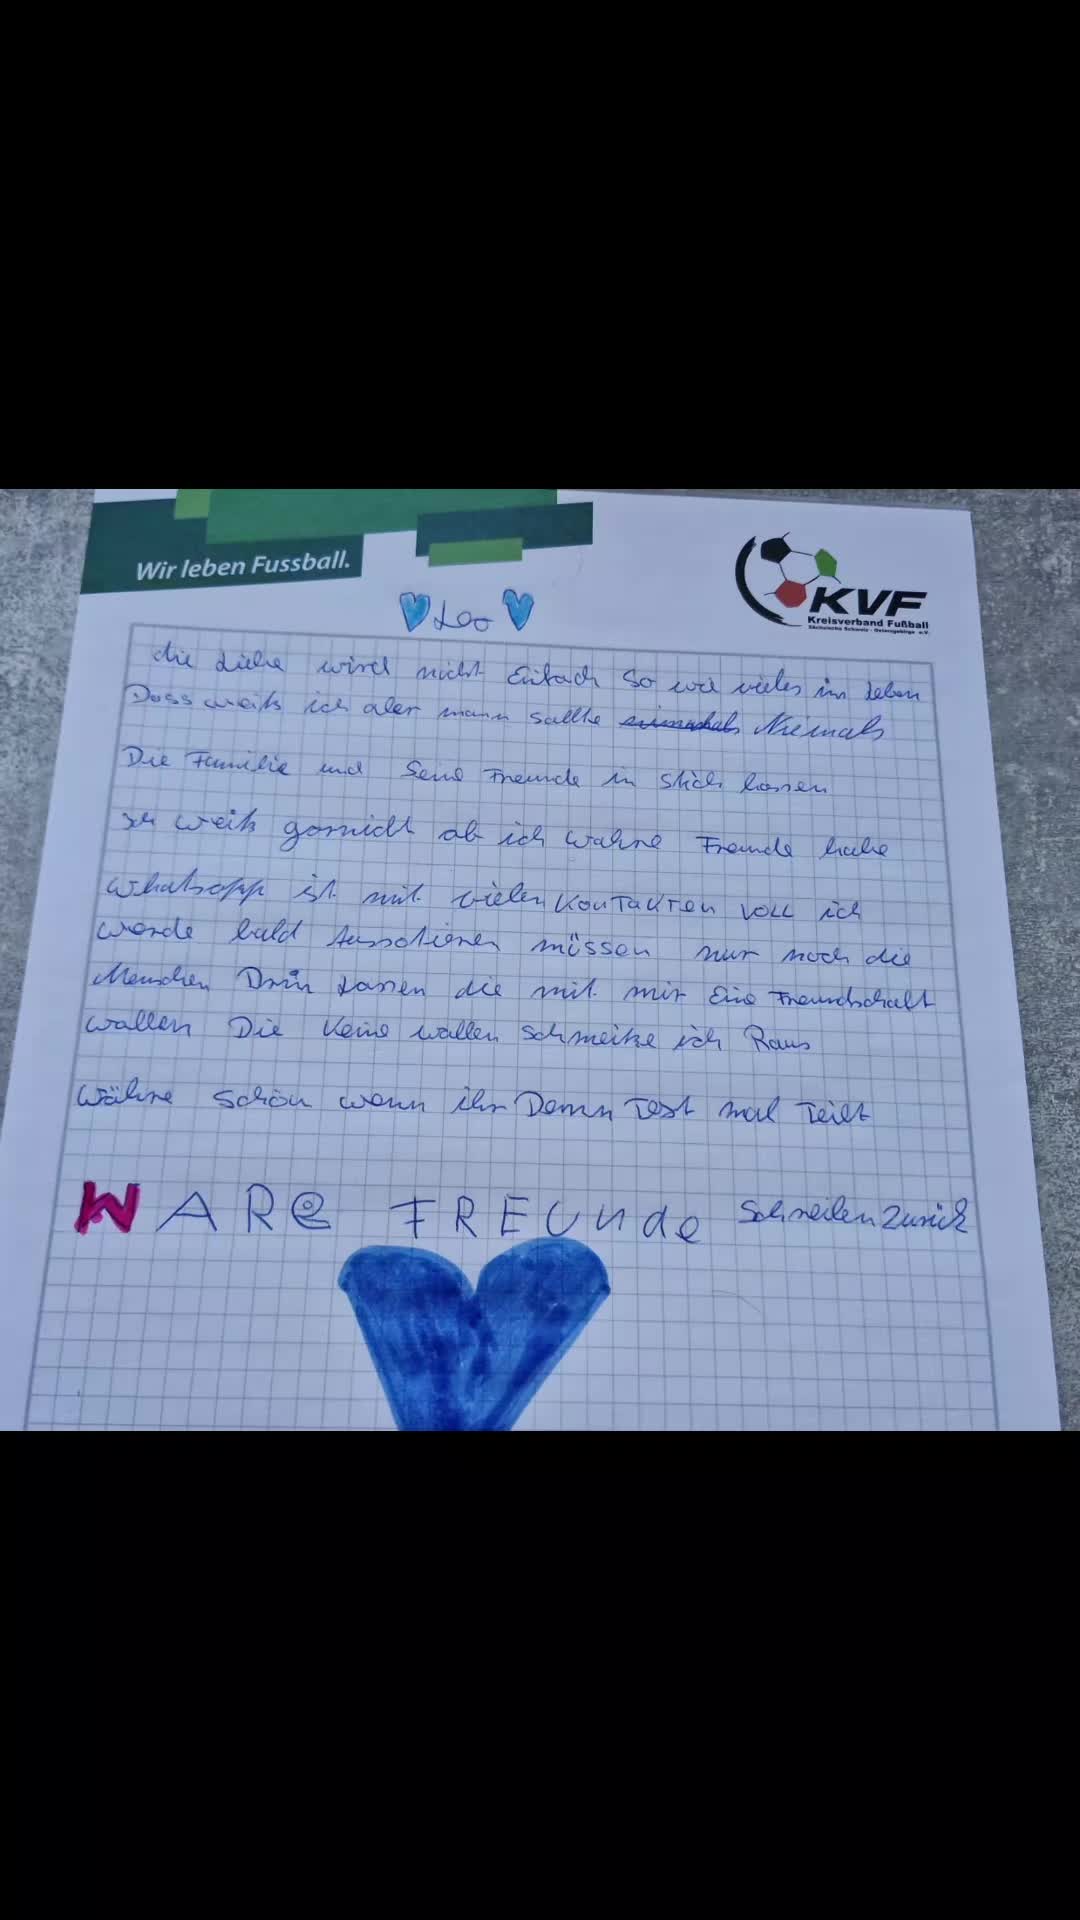 Wir leben Fussball.
KVF
Kreisverband Fußball
Sächsische Schweiz - Osterzgebirge e.V.
Leo
die Liebe wird nicht Einfach So wie vieles im leben
Dass weiß ich aber mann sollte Niemals
Die Familie und Seine Freunde in Stich lassen
Ich weiß garnicht ob ich wahre Freunde habe
Whatsapp ist mit vielen Kontakten voll ich
werde bald Aussotieren müssen nur noch die
Menschen Drin Lassen die mit mir Eine Freundschaft
wollen Die Keine wollen Schmeiße ich Raus
Währe schön wenn ihr Denn Text mal Teilt
WARe FREUNde Schreiben Zurück